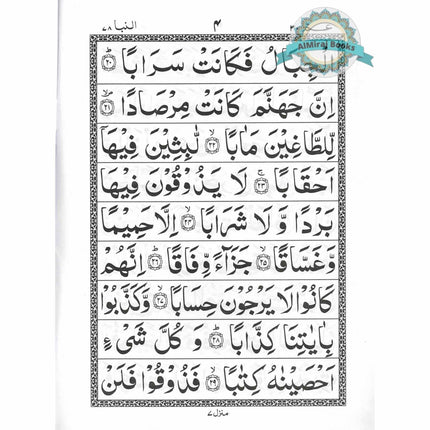 النبا ٧٨
٤
AlMiraj Books
الْجِبَالُ فَكَانَتْ سَرَابًا ۝٢٠
اِنَّ جَهَنَّمَ كَانَتْ مِرْصَادًا ۝٢١
لِّلطَّاغِيْنَ مَاٰبًا ۝٢٢ لّٰبِثِيْنَ فِيْهَاۤ
اَحْقَابًا ۝٢٣ۚ لَا يَذُوْقُوْنَ فِيْهَا
بَرْدًا وَّ لَا شَرَابًا ۝٢٤ اِلَّا حَمِيْمًا
وَّ غَسَّاقًا ۝٢٥ جَزَآءً وِّفَاقًا ۝٢٦ اِنَّهُمْ
كَانُوْا لَا يَرْجُوْنَ حِسَابًا ۝٢٧ وَّ كَذَّبُوْا
بِاٰيٰتِنَا كِذَّابًا ۝٢٨ وَ كُلَّ شَیْءٍ
اَحْصَيْنٰهُ كِتٰبًا ۝٢٩ فَذُوْقُوْا فَلَنْ
منزل ٧